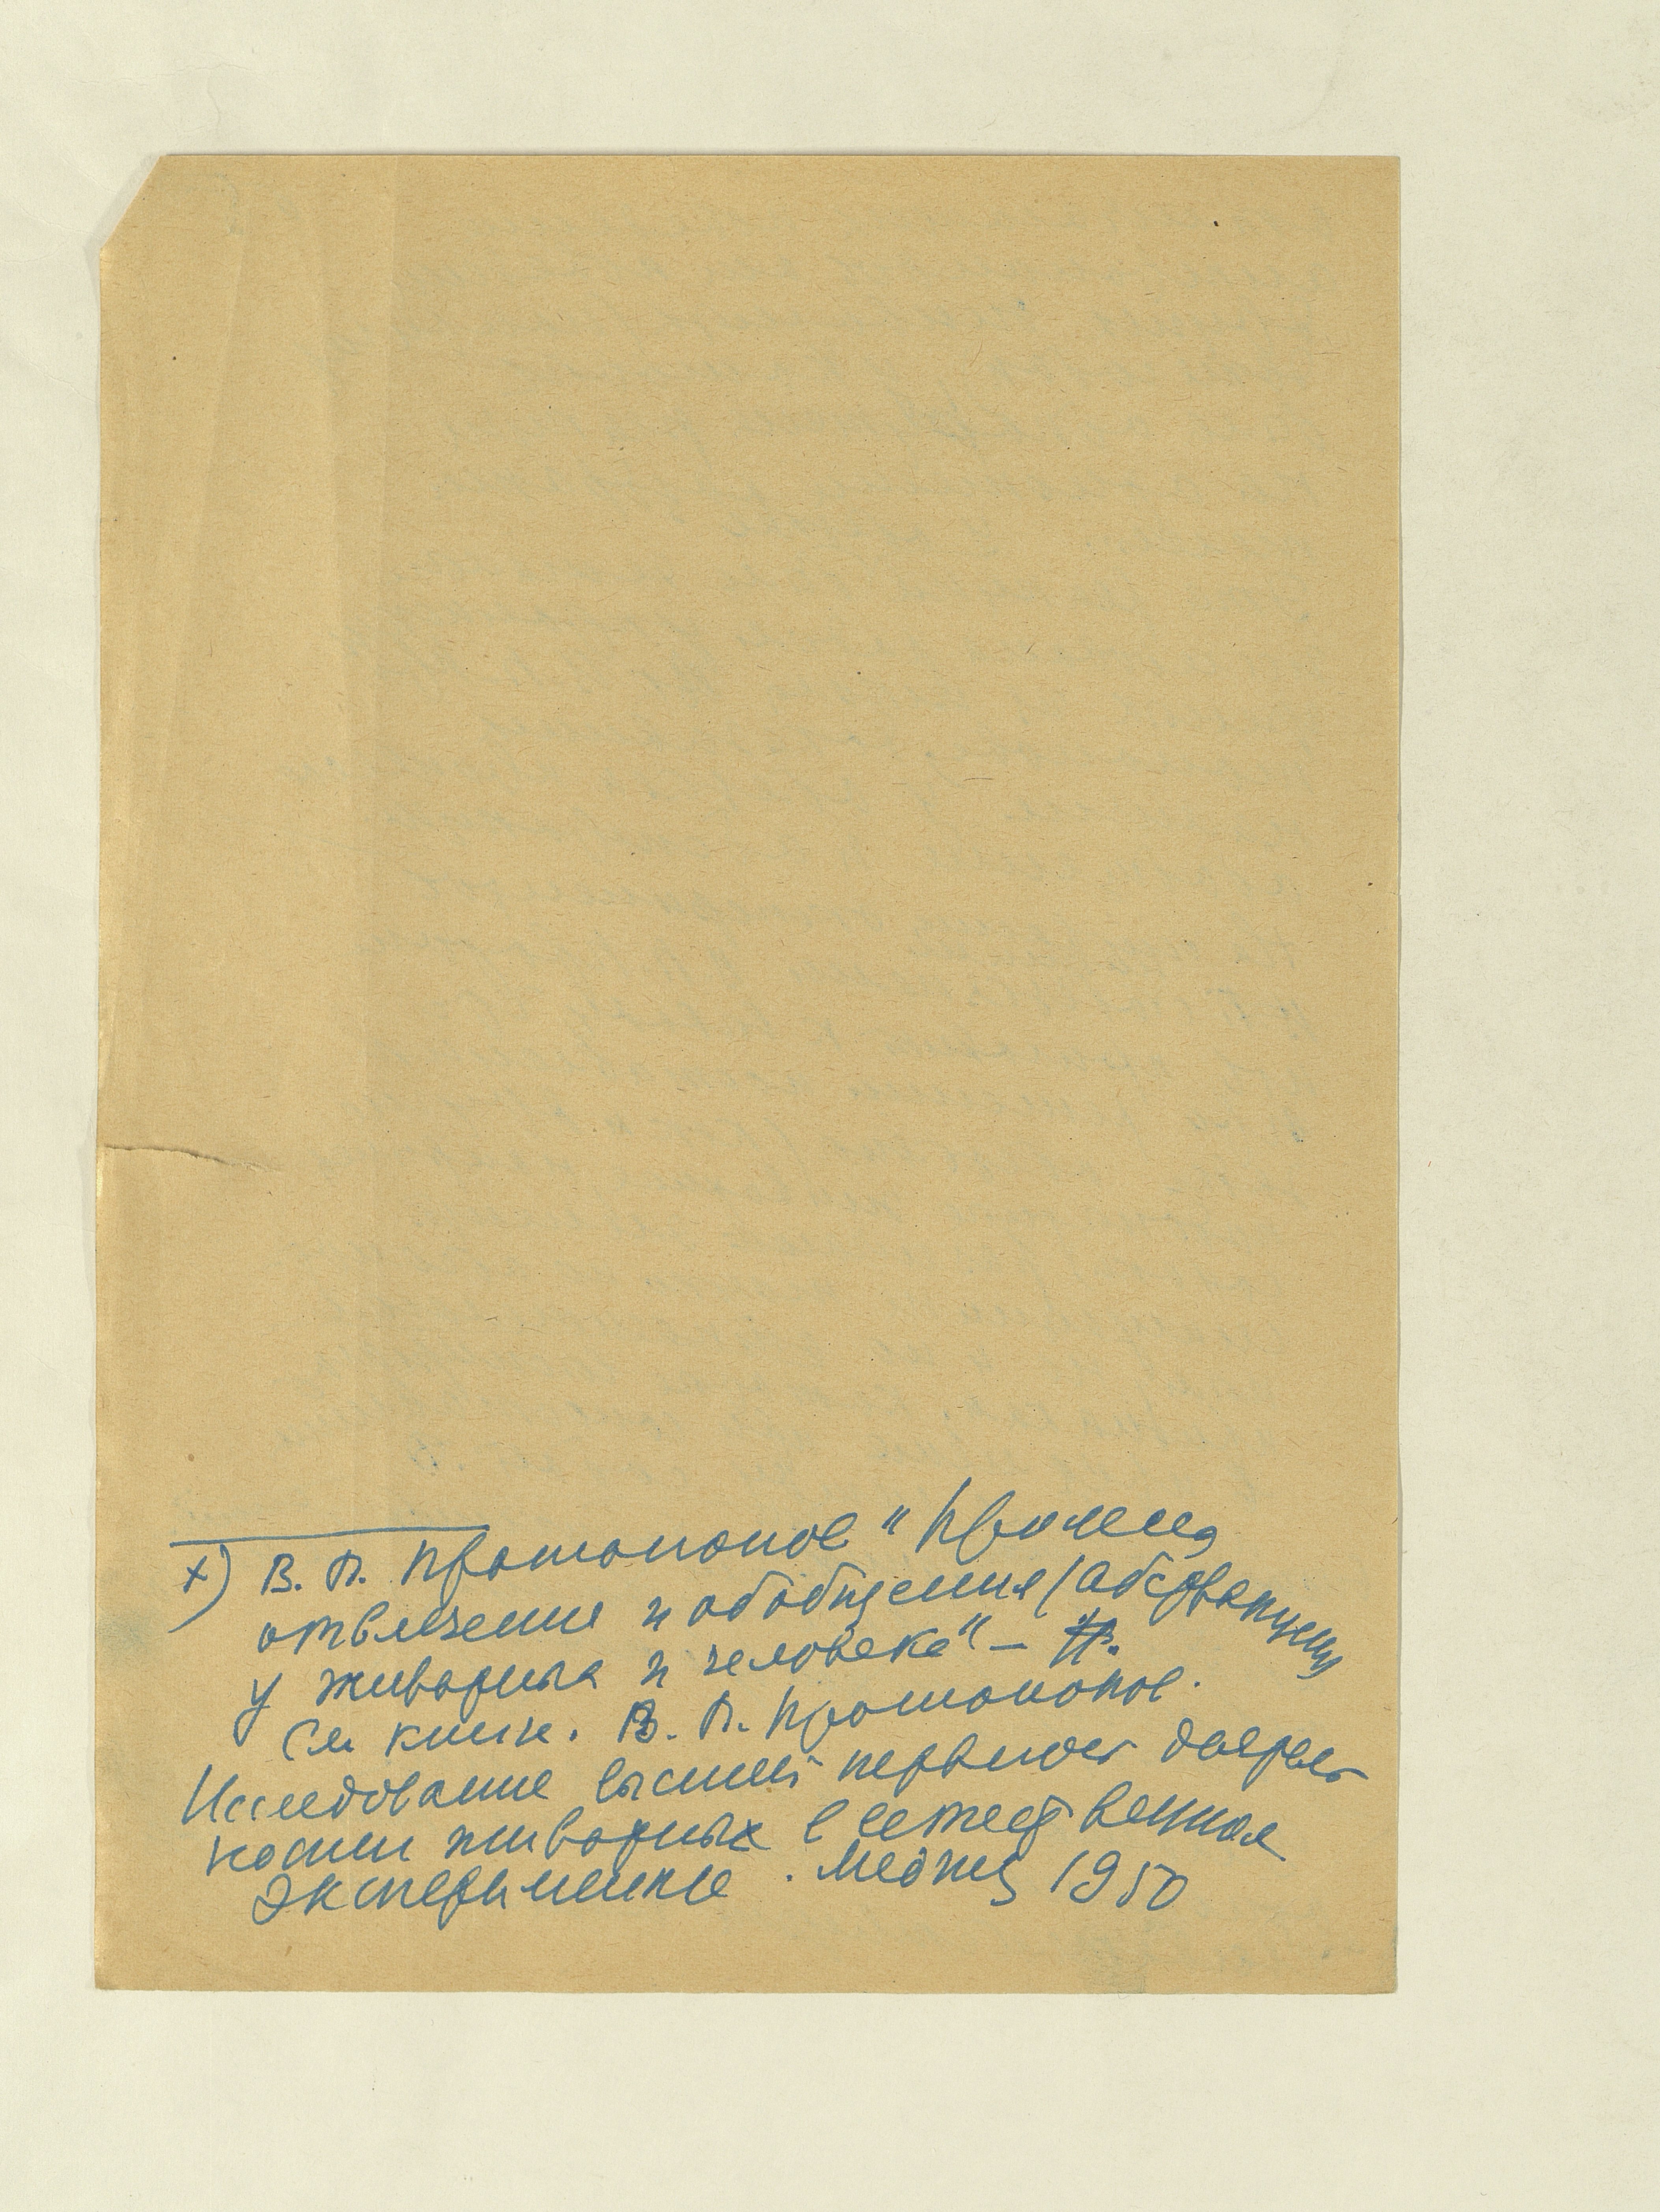 х) В. П. Протопопов "Процесс
отвлечения и обобщения (абстракции)
у животных и человека" –
См книж. В. П. Протопопов.
Исследование высшей нервной деятель
ности животных в естественном
эксперименте. Медгиз 1950